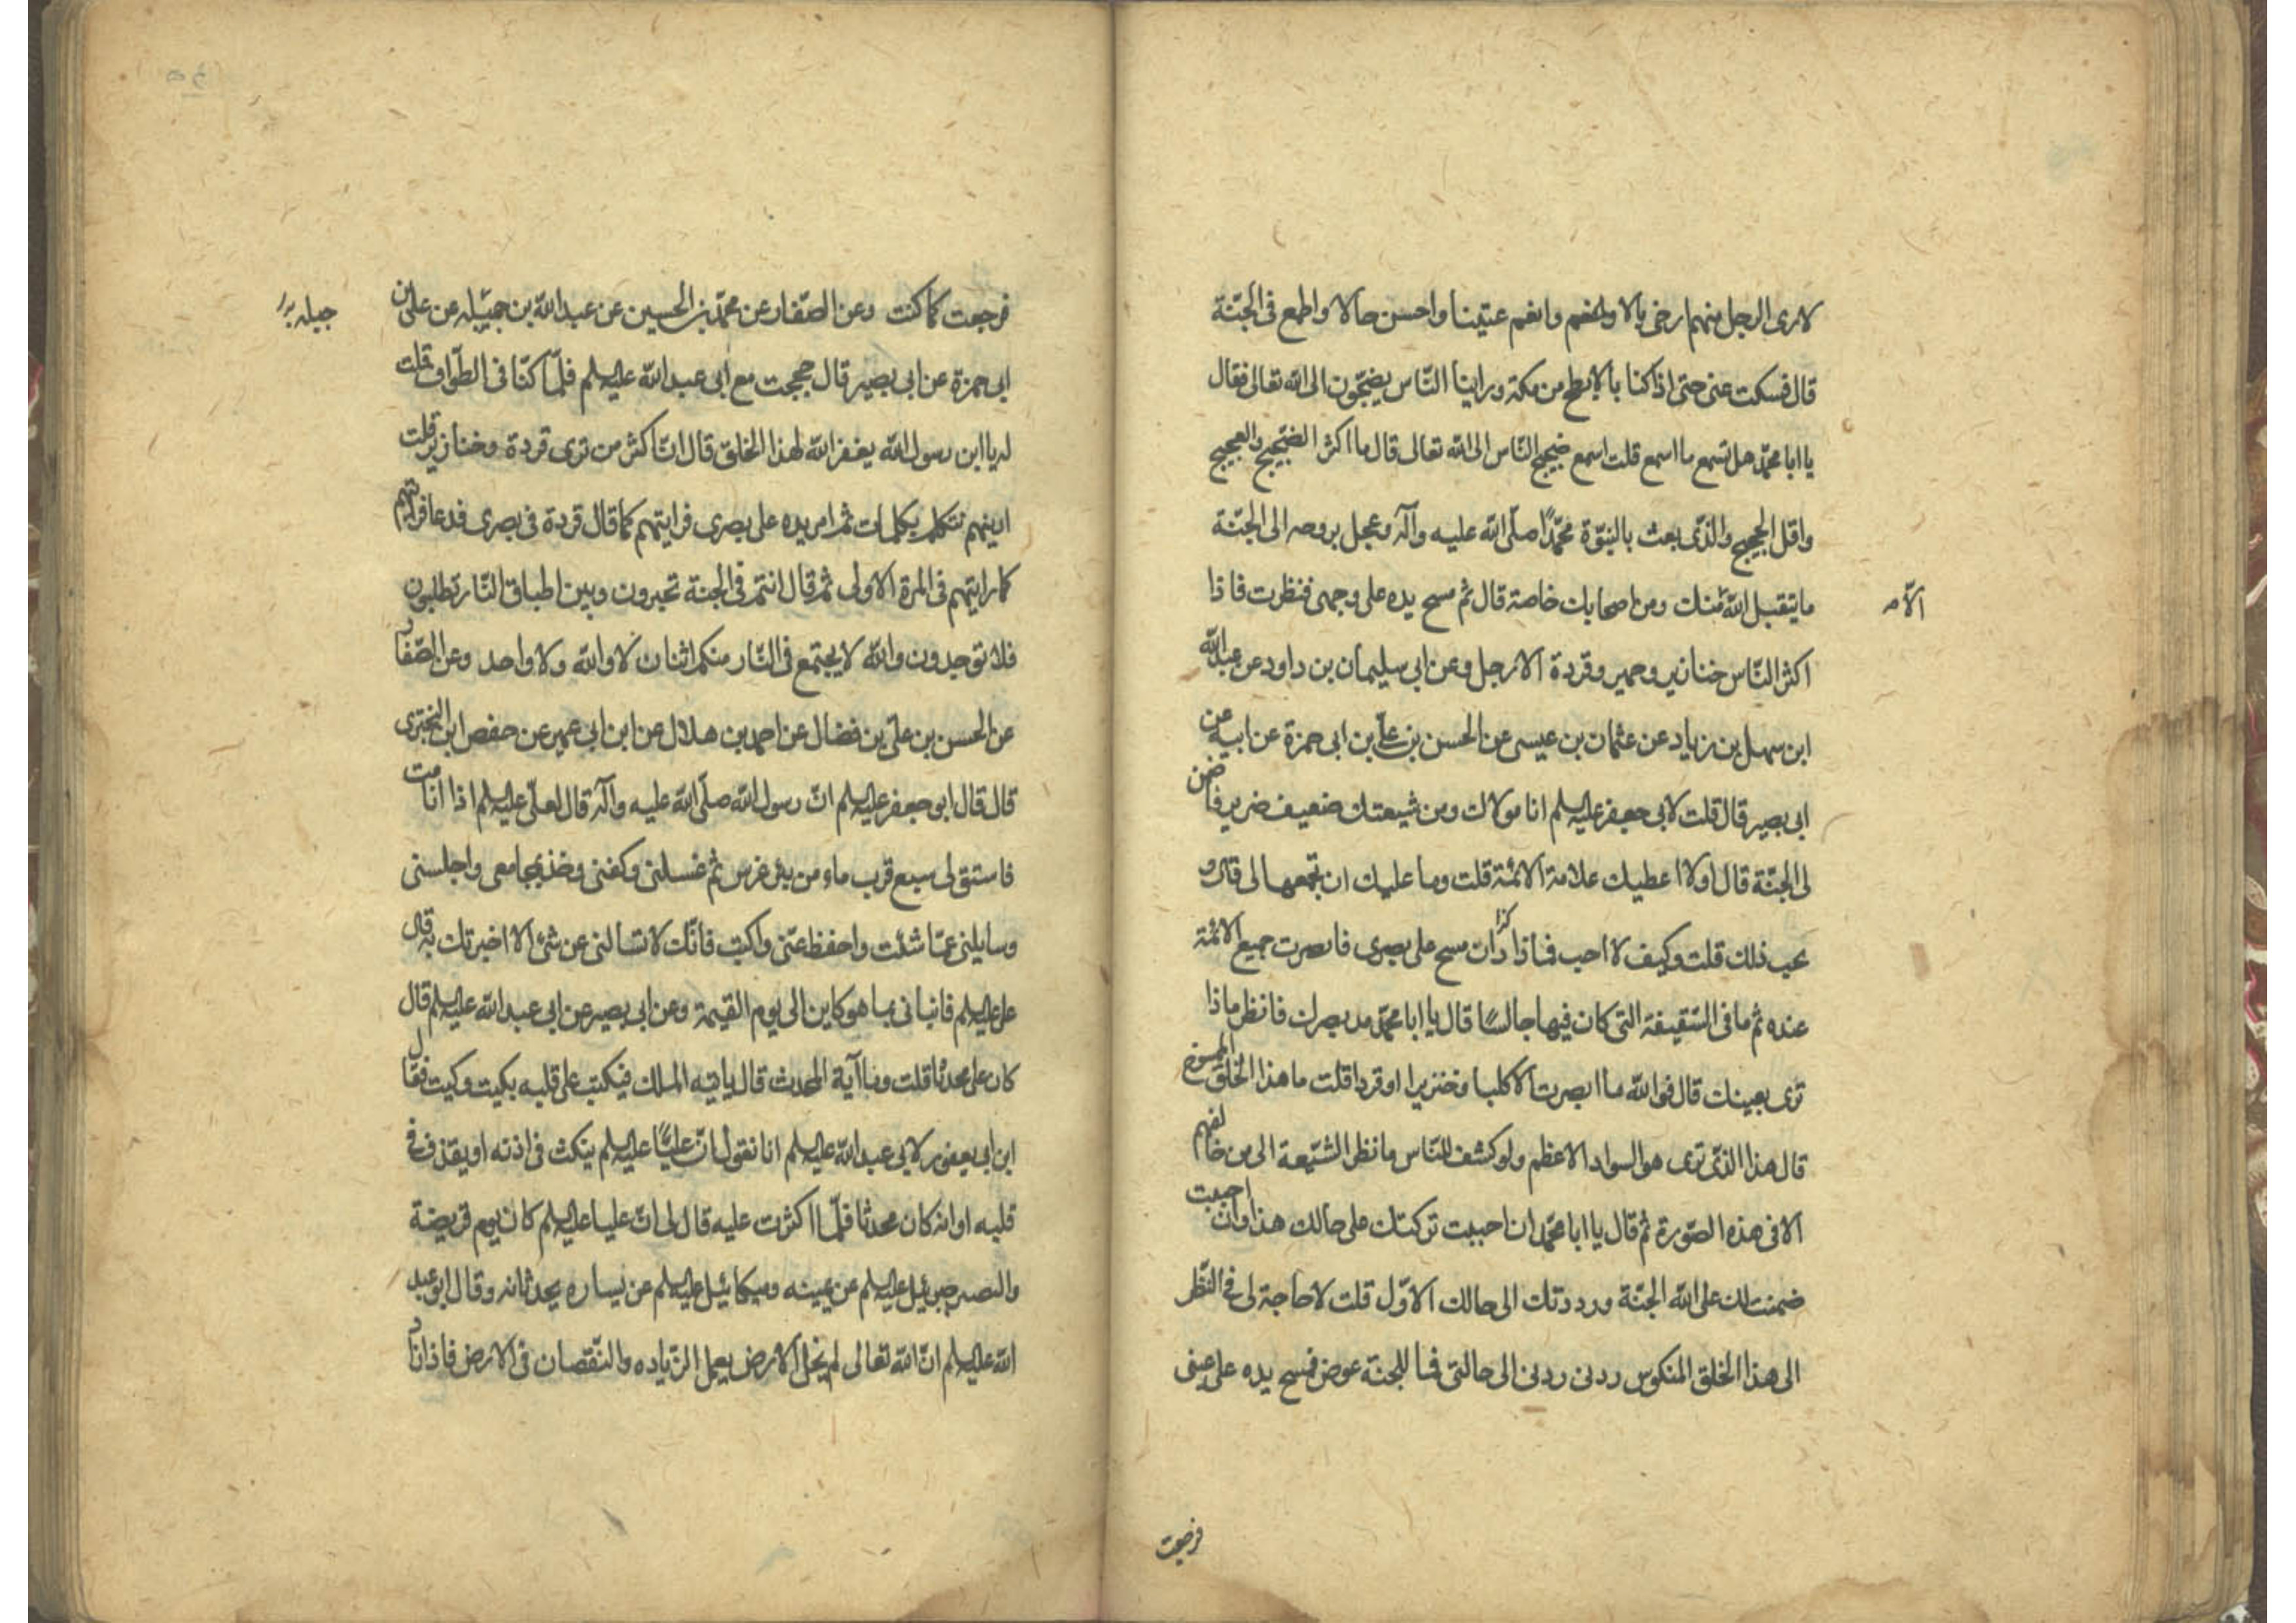 لارى الرجل منهم ارخى بالا وانعم وانعم عيشا واحسن حالا واطمع فى الجنّة
قال فسكت عنى حتى اذا كنا بالابطح من مكة وراينا النّاس يضجّون الى الله تعالى فقال
يا ابا محمّد هل تسمع ما اسمع قلت اسمع ضجيج النّاس الى الله تعالى قال ما اكثر الضجيج والعجيج
واقل الحجيج والذى بعث بالنبوّة محمّدًا صلّى الله عليه وآله وعجل بروحه الى الجنّة
ما يتقبل الله منك ومن اصحابك خاصة قال ثم مسح يده على وجهى فنظرت فاذا
الّا
اكثر النّاس خنازير وحمير وقردة الا رجل وعن ابى سليمان بن داود عن عبد الله
ابن سهل بن زياد عن عثمان بن عيسى عن الحسن بن علىّ بن ابى حمزة عن ابيه عن
ابى بصير قال قلت لابى جعفر عليه السلم انا مولاك ومن شيعتك ضعيف ضرير فاضمن
لى الجنّة قال اولا اعطيك علامة الائمّة قلت وما عليك ان تجمعها لى قال و
تحب ذلك قلت وكيف لا احب فما ذا كذا زان مسح على بصرى فابصرت جميع الائمّة
عنده ثم ما فى السّقيفة التى كان فيها جالسًا قال يا ابا محمّد مد بصرك فانظر ماذا
ترى بعينك قال فوالله ما ابصرت الا كلبا وخنزيرا او قردا قلت ما هذا الخلق الممسوخ
قال هذا الذى ترى هو السواد الاعظم ولو كشف للنّاس ما نظر الشّيعة الى من خالفهم
الا فى هذه الصّورة ثم قال يا ابا محمّد ان احببت تركتك على حالك هذا وان احببت
ضمنت لك على الله الجنّة ورددتك الى حالك الاوّل قلت لا حاجة لى فى النّظر
الى هذا الخلق المنكوس ردنى ردنى الى حالتى فما للجنة عوض فمسح يده على عينى
فرجعت
فرجعت كما كنت وعن الصّفار عن محمّد بن الحسين عن عبد الله بن جميله عن على بن
ابى حمزة عن ابى بصير قال حججت مع ابى عبد الله عليه السلم فلمّا كنّا فى الطّواف قلت
له يا ابن رسول الله يغفر الله لهذا الخلق قال انّ اكثر من ترى قردة وخنازير قلت
ارينهم فتكلم بكلمات ثم امر يده على بصرى فرايتهم كما قال قردة فى بصرى فدعا فرايتهم
كما رايتهم فى المرة الاولى ثم قال انتم فى الجنة تحبرون وبين اطباق النّار تطلبون
فلا توجدون والله لا يجتمع فى النّار منكم اثنان لا والله ولا واحد وعن الصّفار
عن الحسن بن علىّ بن فضال عن احمد بن هلال عن ابن ابى عمير عن حفص ابن البخترى
قال قال ابو جعفر عليه السلم انّ رسول الله صلّى الله عليه وآله قال لعلىّ عليه السلم اذا انا مت
فاستق لى سبع قرب ماء من بئر غرس ثم غسلنى وكفنى وخذ بمجامعى واجلسنى
وسايلنى عمّا شئت واحفظ عنّى واكتب فانّك لا تسالنى عن شئ الا اخبرتك به قال
على عليه السلم فانبانى بما هو كاين الى يوم القيمة وعن ابى بصير عن ابى عبد الله عليه السلم قال
كان على محدثا قلت وما آية المحدث قال ياتيه الملك فينكت على قلبه بكيت وكيت فقال
ابن ابى يعفور لابى عبد الله عليه السلم انا نقول انّ عليًّا عليه السلم ينكت فى اذنه او يقذف فى
قلبه او انه كان محدثا فلمّا اكثرت عليه قال لى انّ عليا عليه السلم كان يوم قريضة
والنصير جبرئيل عليه السلم عن يمينه وميكائيل عليه السلم عن يساره يحدثانه وقال ابو عبد
الله عليه السلم انّ الله تعالى لم يخل الارض يعمل الزّياده والنّقصان فى الارض فاذا زاد